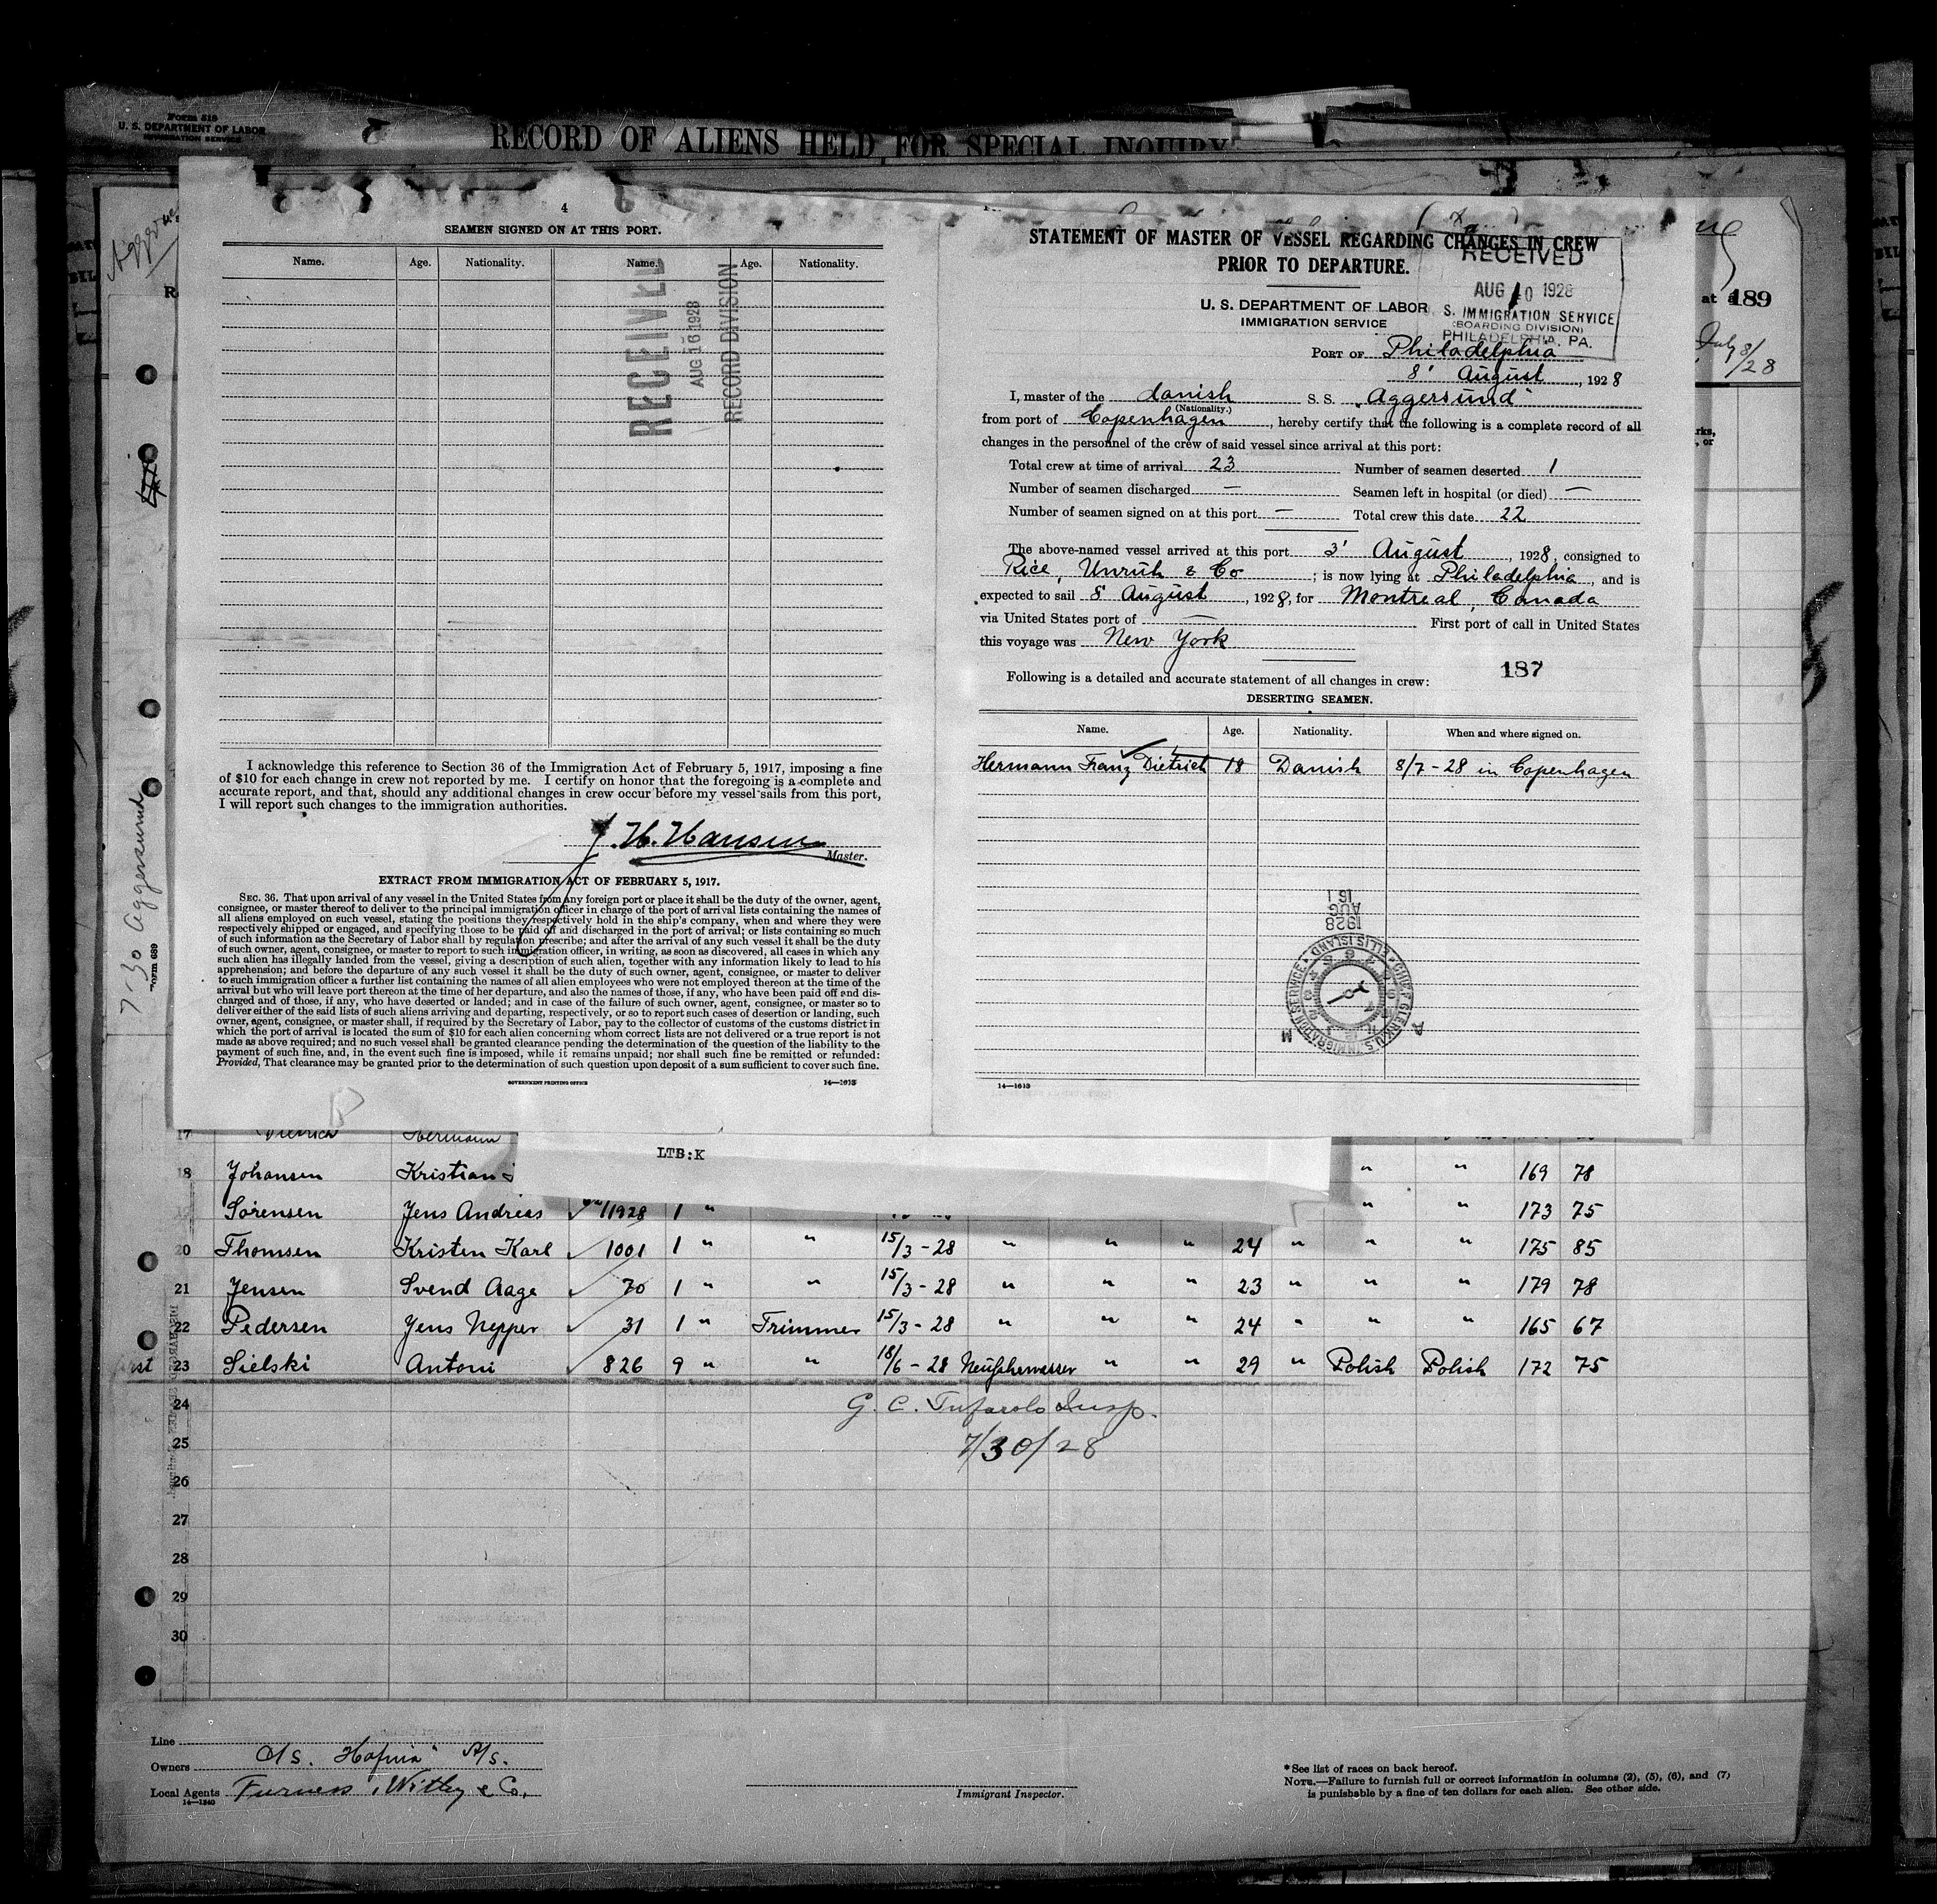 Form 616
U. S. DEPARTMENT OF LABOR
IMMIGRATION SERVICE
RECORD OF ALIENS HELD FOR SPECIAL INQUIRY
4
SEAMEN SIGNED ON AT THIS PORT.
Name. Age. Nationality. Name. Age. Nationality.
RECEIVED
AUG 16 1928
RECORD DIVISION
I acknowledge this reference to Section 36 of the Immigration Act of February 5, 1917, imposing a fine
of $10 for each change in crew not reported by me. I certify on honor that the foregoing is a complete and
accurate report, and that, should any additional changes in crew occur before my vessel sails from this port,
I will report such changes to the immigration authorities.
H. Hansen
Master.
EXTRACT FROM IMMIGRATION ACT OF FEBRUARY 5, 1917.
SEC. 36. That upon arrival of any vessel in the United States from any foreign port or place it shall be the duty of the owner, agent,
consignee, or master thereof to deliver to the principal immigration officer in charge of the port of arrival lists containing the names of
all aliens employed on such vessel, stating the positions they respectively hold in the ship's company, when and where they were
respectively shipped or engaged, and specifying those to be paid off and discharged in the port of arrival; or lists containing so much
of such information as the Secretary of Labor shall by regulation prescribe; and after the arrival of any such vessel it shall be the duty
of such owner, agent, consignee, or master to report to such immigration officer, in writing, as soon as discovered, all cases in which any
such alien has illegally landed from the vessel, giving a description of such alien, together with any information likely to lead to his
apprehension; and before the departure of any such vessel it shall be the duty of such owner, agent, consignee, or master to deliver
to such immigration officer a further list containing the names of all alien employees who were not employed thereon at the time of the
arrival but who will leave port thereon at the time of her departure, and also the names of those, if any, who have been paid off and dis-
charged and of those, if any, who have deserted or landed; and in case of the failure of such owner, agent, consignee, or master so to
deliver either of the said lists of such aliens arriving and departing, respectively, or so to report such cases of desertion or landing, such
owner, agent, consignee, or master shall, if required by the Secretary of Labor, pay to the collector of customs of the customs district in
which the port of arrival is located the sum of $10 for each alien concerning whom correct lists are not delivered or a true report is not
made as above required; and no such vessel shall be granted clearance pending the determination of the question of the liability to the
payment of such fine, and, in the event such fine is imposed, while it remains unpaid; nor shall such fine be remitted or refunded:
Provided, That clearance may be granted prior to the determination of such question upon deposit of a sum sufficient to cover such fine.
GOVERNMENT PRINTING OFFICE 14—1613
STATEMENT OF MASTER OF VESSEL REGARDING CHANGES IN CREW
PRIOR TO DEPARTURE.
RECEIVED
AUG 10 1928
U. S. DEPARTMENT OF LABOR
IMMIGRATION SERVICE
S. IMMIGRATION SERVICE
(BOARDING DIVISION)
PHILADELPHIA, PA.
PORT OF Philadelphia
8' August, 1928
I, master of the danish S. S. "Aggersund"
(Nationality.)
from port of Copenhagen, hereby certify that the following is a complete record of all
changes in the personnel of the crew of said vessel since arrival at this port:
Total crew at time of arrival 23 Number of seamen deserted 1
Number of seamen discharged — Seamen left in hospital (or died) —
Number of seamen signed on at this port — Total crew this date 22
The above-named vessel arrived at this port 3' August, 1928, consigned to
Rice, Unruh & Co; is now lying at Philadelphia, and is
expected to sail 8' August, 1928, for Montreal, Canada
via United States port of — First port of call in United States
this voyage was New York
187
Following is a detailed and accurate statement of all changes in crew:
DESERTING SEAMEN.
Name. Age. Nationality. When and where signed on.
Hermann Franz Dietrich 18 Danish 8/7-28 in Copenhagen
1928
AUG
16
CHIEF CLERK U.S. IMMIGRATION SERVICE ELLIS ISLAND
A M
14—1613
at 189
July 3/28
7-30 Aggersund
Form 689
17 Dietrich Hermann
LTB:K
18 Johansen Kristian " " 169 78
Sørensen Jens Andreas 1928 1 " " " 173 75
20 Thomsen Kristen Karl 1001 1 " " 15/3-28 " " " 24 " " " 175 85
21 Jensen Svend Aage 70 1 " " 15/3-28 " " " 23 " " " 179 78
22 Pedersen Jens Nepper 31 1 " Trimmer 15/3-28 " " " 24 " " " 165 67
23 Sielski Antoni 826 9 " " 18/6-28 Neufahrwasser " " 29 " Polish Polish 172 75
24
G. C. Tufarolo Insp.
25
7/30/28
26
27
28
29
30
Line
Owners D/S. "Hafnia" A/S.
Local Agents Furness, Withy & Co.
14—1240
Immigrant Inspector.
* See list of races on back hereof.
NOTE.—Failure to furnish full or correct information in columns (2), (5), (6), and (7)
is punishable by a fine of ten dollars for each alien. See other side.